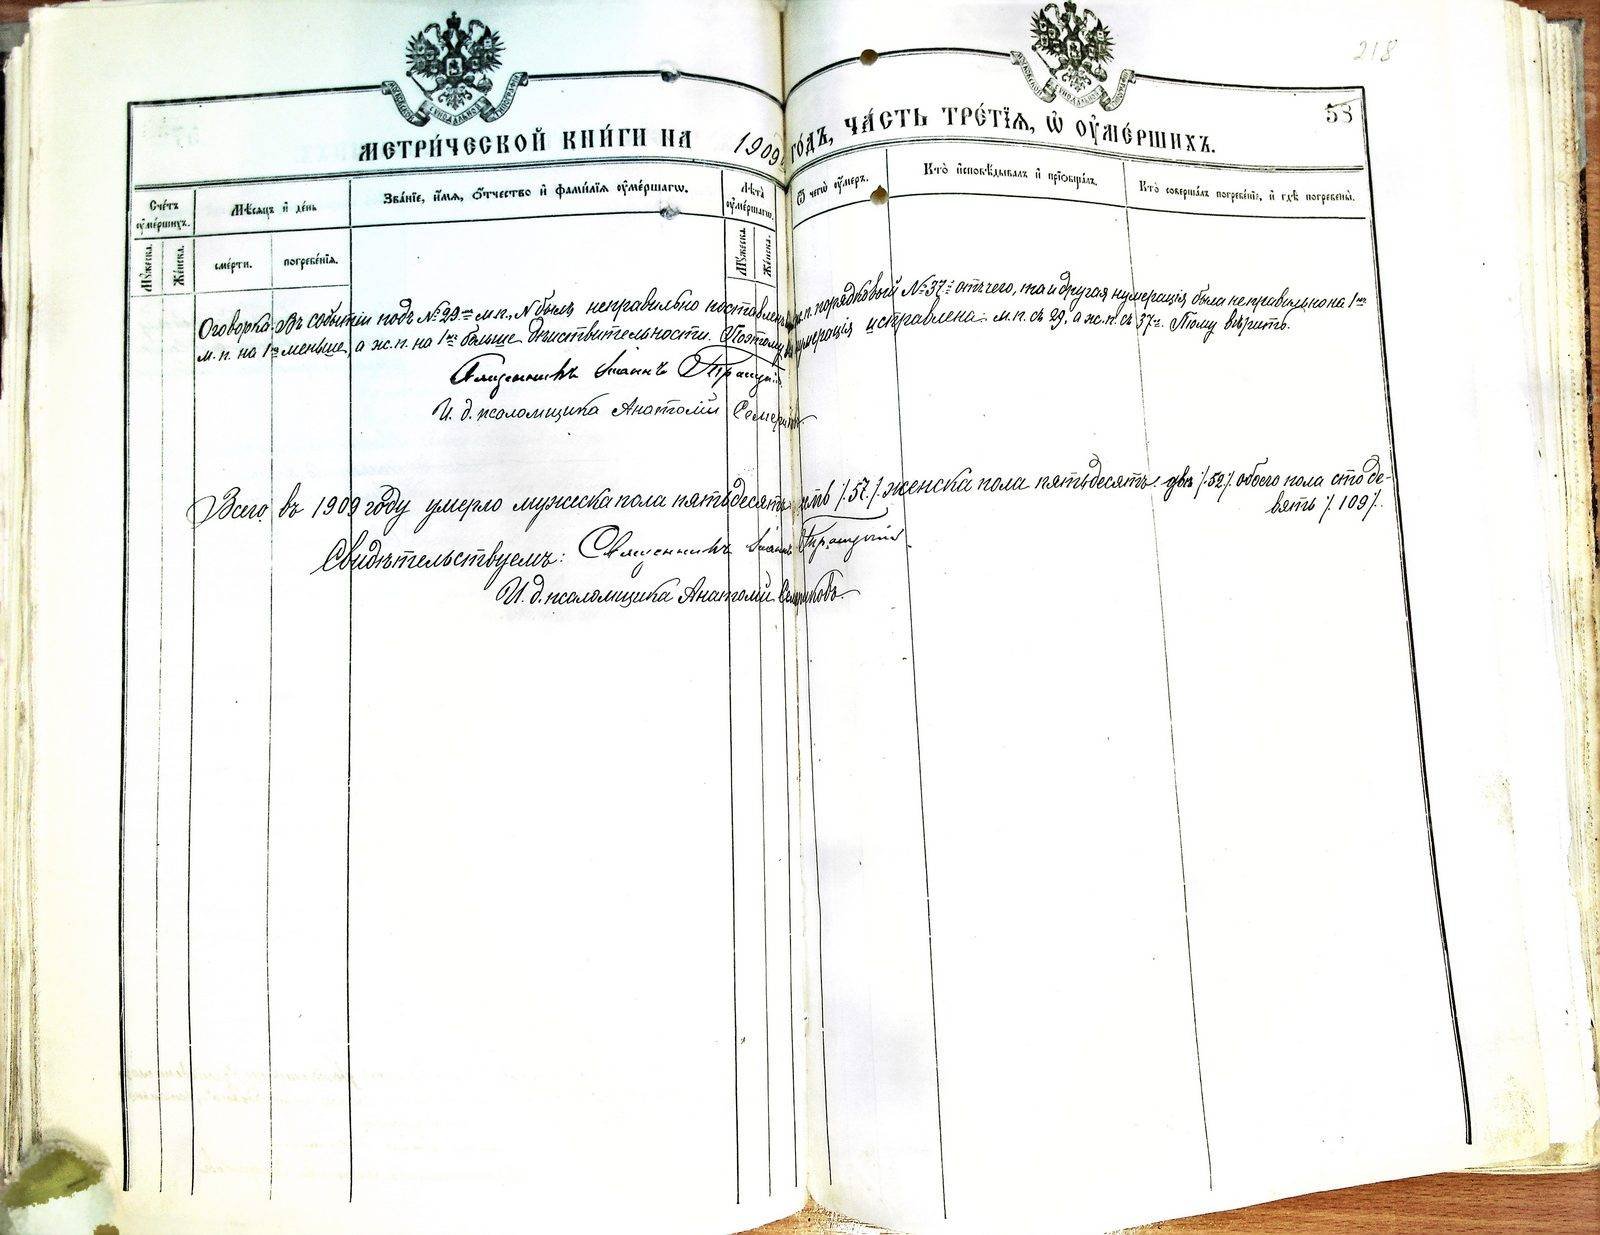 218
58
МЕТРИ́ЧЕСКОЙ КНИ́ГИ НА 1909 ГО́ДЪ, ЧА́СТЬ ТРЕ́ТІЯ, Ѡ ОУ҆МЕ́РШИХЪ.
Сче́тъ оу҆ме́ршихъ.
Мѣ́сяцъ и҆ де́нь
Зва́нїе, и҆́мя, ѻ҆́тчество и҆ фами́лїя оу҆ме́ршагѡ.
Лѣ́тъ оу҆ме́ршагѡ.
Ѿ чегѡ̀ оу҆́меръ.
Кто̀ и҆сповѣ́дывалъ и҆ прїѡбща́лъ.
Кто̀ соверша́лъ погребе́нїе, и҆ гдѣ̀ погребены̀.
Мꙋ́жеска.
Же́нска.
сме́рти.
погребе́нїя.
Мꙋ́жеска.
Же́нска.
Оговорка: Въ событіи подъ № 29 м.п., № былъ неправильно поставленъ ж.п. порядковый № 37 отъ чего, та и другая нумерація была неправильно на 1
м.п. на 1 меньше, а ж.п. на 1 больше дѣйствительности. Поэтому нумерація исправлена: м.п. съ 29, а ж.п. съ 37. Тому вѣрить.
Священникъ Іоаннъ
И. д. псаломщика Анатолій
Всего въ 1909 году умерло мужеска пола пятьдесятъ /.57./ женска пола пятьдесятъ двѣ /.52/. обоего пола сто де-
вять /.109/.
Свидѣтельствуемъ: Священникъ Іоаннъ
И. д. псаломщика Анатолій